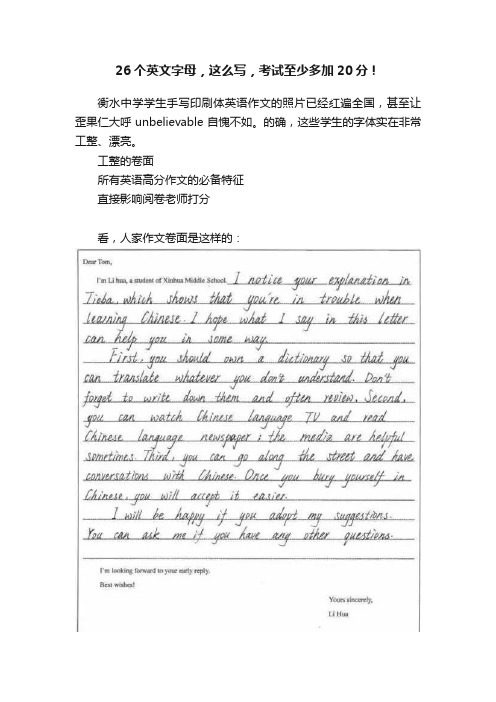 26个英文字母，这么写，考试至少多加20分！
衡水中学学生手写印刷体英语作文的照片已经红遍全国，甚至让
歪果仁大呼 unbelievable 自愧不如。的确，这些学生的字体实在非常
工整、漂亮。
工整的卷面
所有英语高分作文的必备特征
直接影响阅卷老师打分
看，人家作文卷面是这样的：
Dear Tom,
I'm Li hua, a student of Xinhua Middle School. I notice your explanation in
Tieba, which shows that you're in trouble when
learning Chinese. I hope what I say in this letter
can help you in some way.
First, you should own a dictionary so that you
can translate whatever you don't understand. Don't
forget to write down them and often review. Second,
you can watch Chinese language TV and read
Chinese language newspaper; the media are helpful
sometimes. Third, you can go along the street and have
conversations with Chinese. Once you bury yourself in
Chinese, you will accept it easier.
I will be happy if you adopt my suggestions.
You can ask me if you have any other questions.
I'm looking forward to your early reply.
Best wishes!
Yours sincerely,
Li Hua